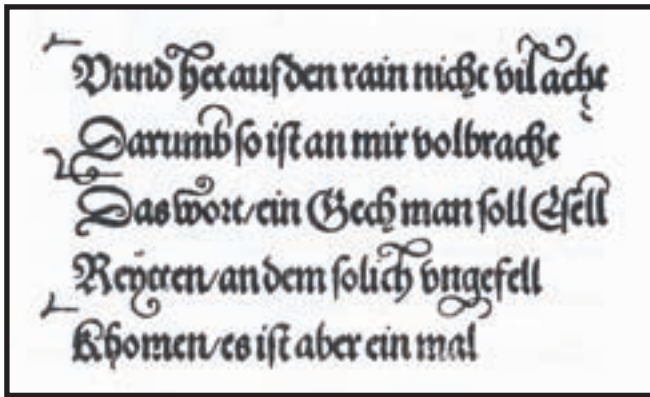 Vnnd het auf den rain nicht vil acht
Darumb so ist an mir volbracht
Das wort/ ein Gech man soll Esell
Reyten/ an dem solich vngefell
Khomen/ es ist aber ein mal